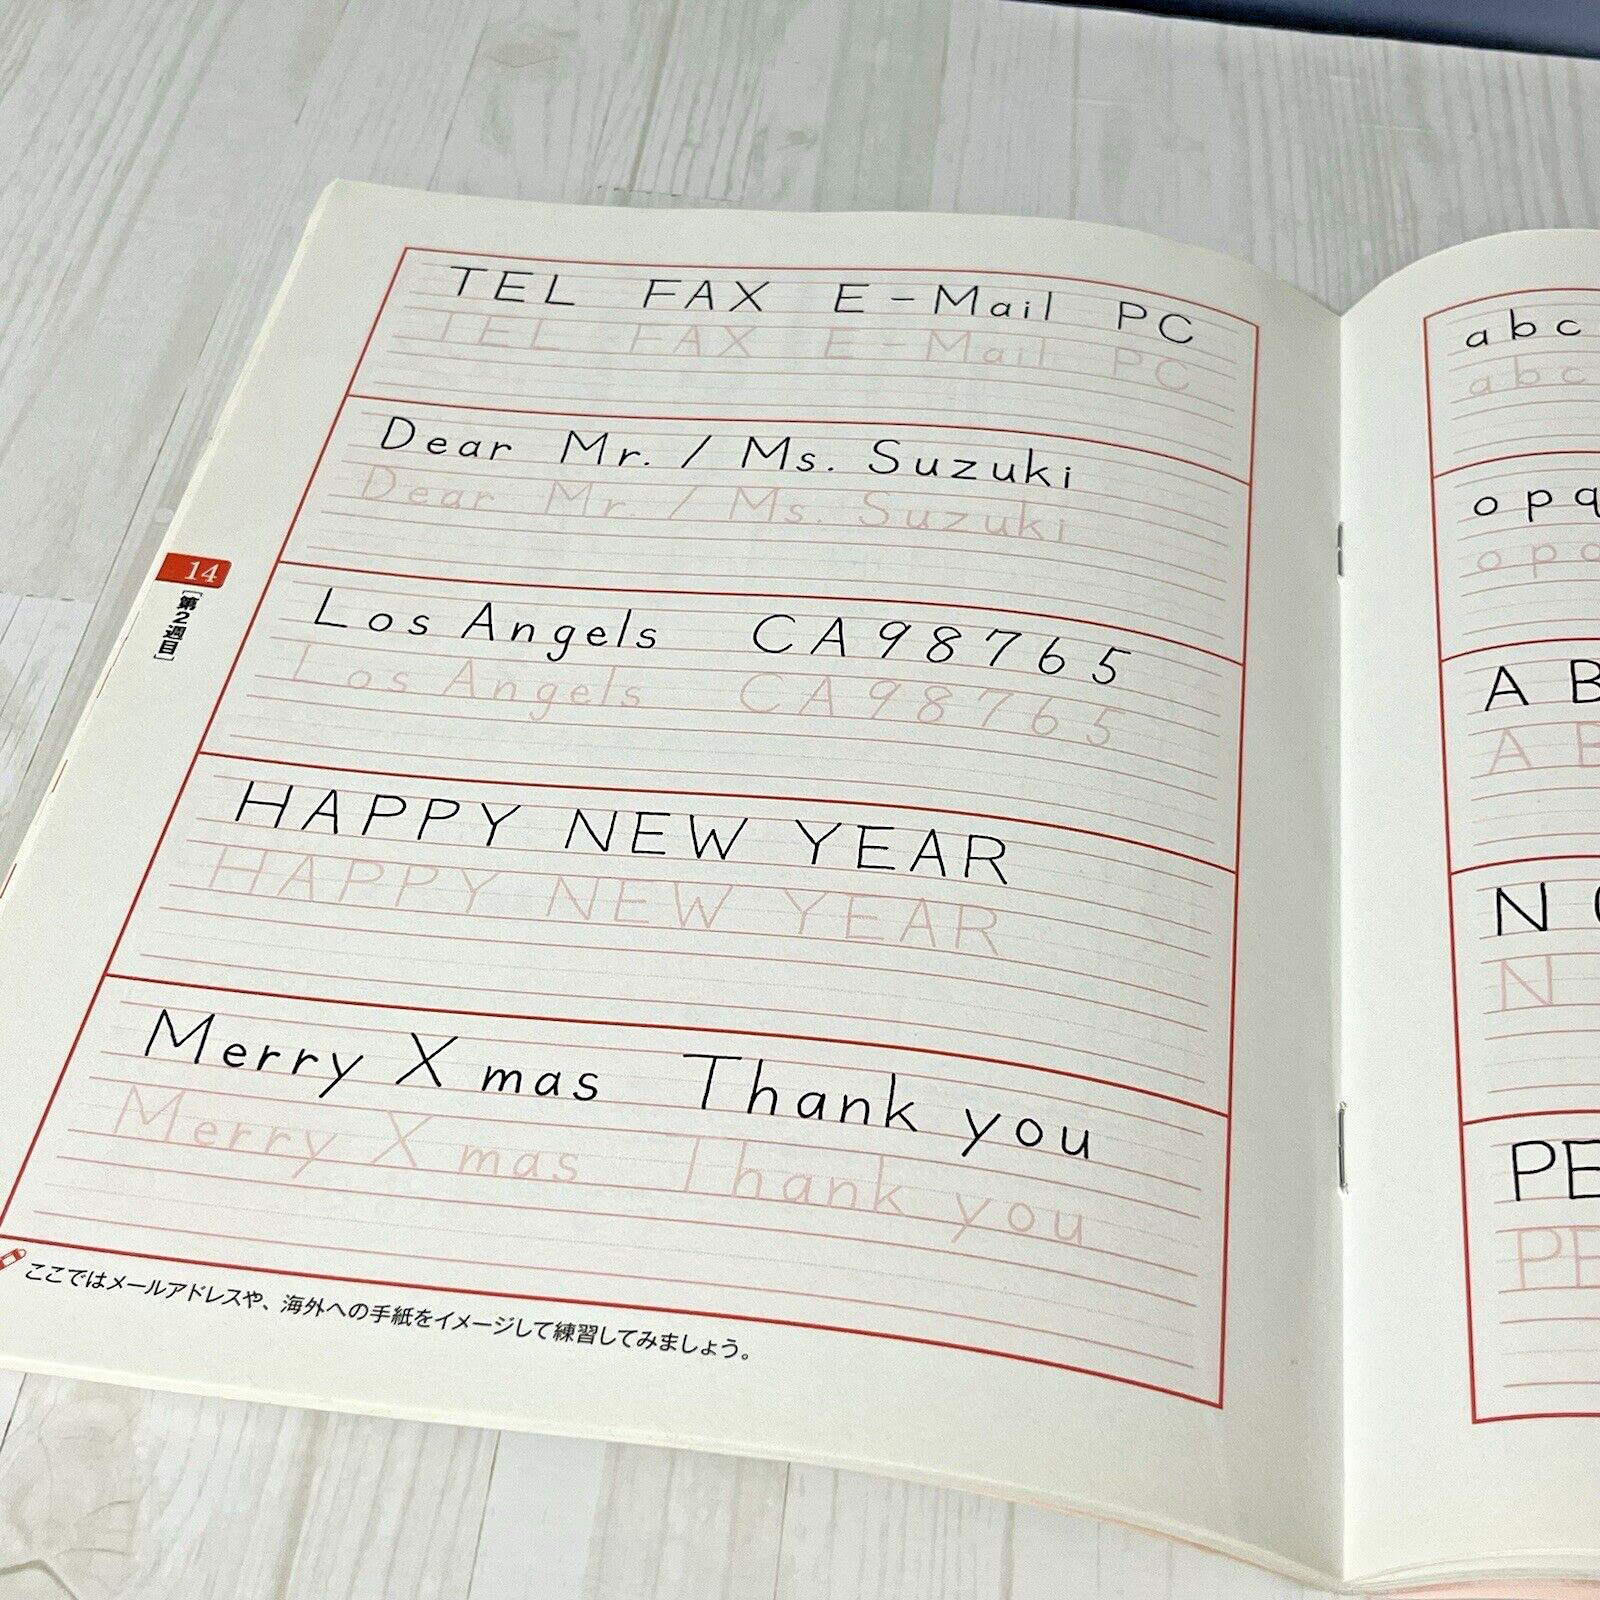 TEL FAX E-Mail PC
TEL FAX E-Mail PC
Dear Mr. / Ms. Suzuki
Dear Mr. / Ms. Suzuki
Los Angels CA98765
Los Angels CA98765
HAPPY NEW YEAR
HAPPY NEW YEAR
Merry Xmas Thank you
Merry Xmas Thank you
ここではメールアドレスや、海外への手紙をイメージして練習してみましょう。
14
[第2週目]
a b c
a b c
o p q
o p q
A B
A B
N
N
PE
PE